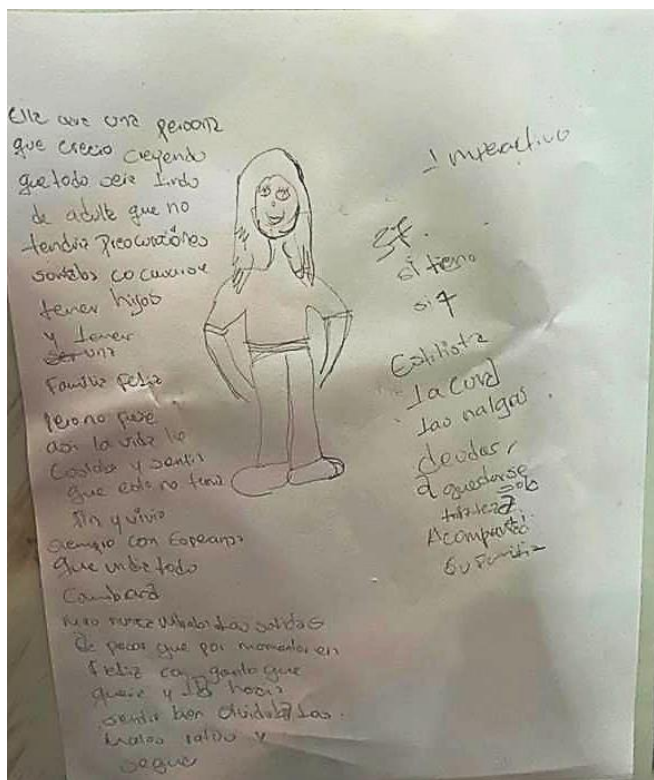 Ella era una persona
que crecio creyendo
que todo seria lindo
de adulta que no
tendria preocupaciónes
tener hijos
y tener
una
Familia Feliz
pero no fue
asi la vida le
y sentir
que esto no tenia
fin y vivio
siempre con Esperanza
que un dia todo
Cambiará
pero nunca las salidas
que por momentos era
Feliz con gente que
queria y la hacia
sentir bien olvidaba las
malos ratos y
seguia
Imperactivo
37.
si tieno
si 7
Estilista
la cara
las nalgas
deudas,
a quedarse
solo
tristeza
Acompañado
su Familia